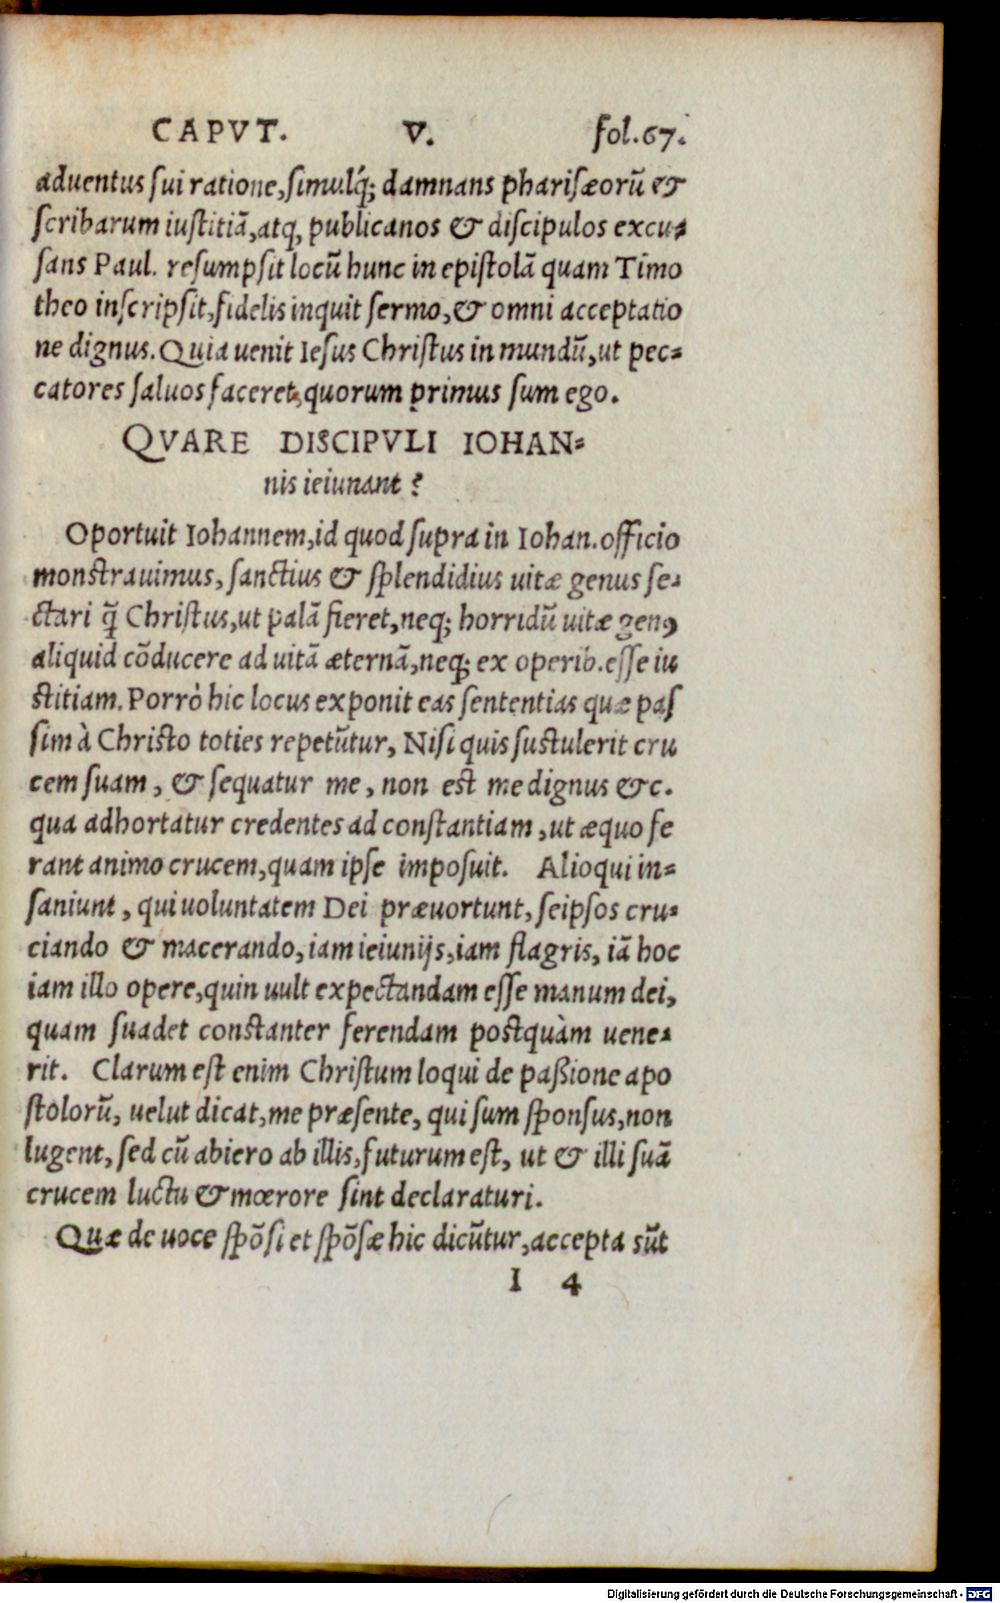 CAPVT. V. fol.67.
aduentus sui ratione, simulq́; damnans pharisæorũ &
scribarum iustitiã, atq, publicanos & discipulos excu-
sans Paul. resumpsit locũ hunc in epistolã quam Timo
theo inscripsit, fidelis inquit sermo, & omni acceptatio
ne dignus. Quia uenit Iesus Christus in mundũ, ut pec-
catores saluos faceret, quorum primus sum ego.
QVARE DISCIPVLI IOHAN-
nis ieiunant?
Oportuit Iohannem, id quod supra in Iohan. officio
monstrauimus, sanctius & splendidius uitæ genus se-
ctari q̃ Christus, ut palã fieret, neq; horridũ uitæ genꝰ
aliquid cõducere ad uitã æternã, neq; ex operib. esse iu
stitiam. Porrò hic locus exponit eas sententias quæ pas
sim à Christo toties repetũtur, Nisi quis sustulerit cru
cem suam, & sequatur me, non est me dignus &c.
qua adhortatur credentes ad constantiam, ut æquo fe
rant animo crucem, quam ipse imposuit. Alioqui in-
saniunt, qui uoluntatem Dei præuortunt, seipsos cru-
ciando & macerando, iam ieiunijs, iam flagris, iã hoc
iam illo opere, quin uult expectandam esse manum dei,
quam suadet constanter ferendam postquàm uene-
rit. Clarum est enim Christum loqui de paßione apo
stolorũ, uelut dicat, me præsente, qui sum sponsus, non
lugent, sed cũ abiero ab illis, futurum est, ut & illi suã
crucem luctu & mœrore sint declaraturi.
Quæ de uoce spõsi et spõsæ hic dicũtur, accepta sũt
I 4
Digitalisierung gefördert durch die Deutsche Forschungsgemeinschaft - DFG